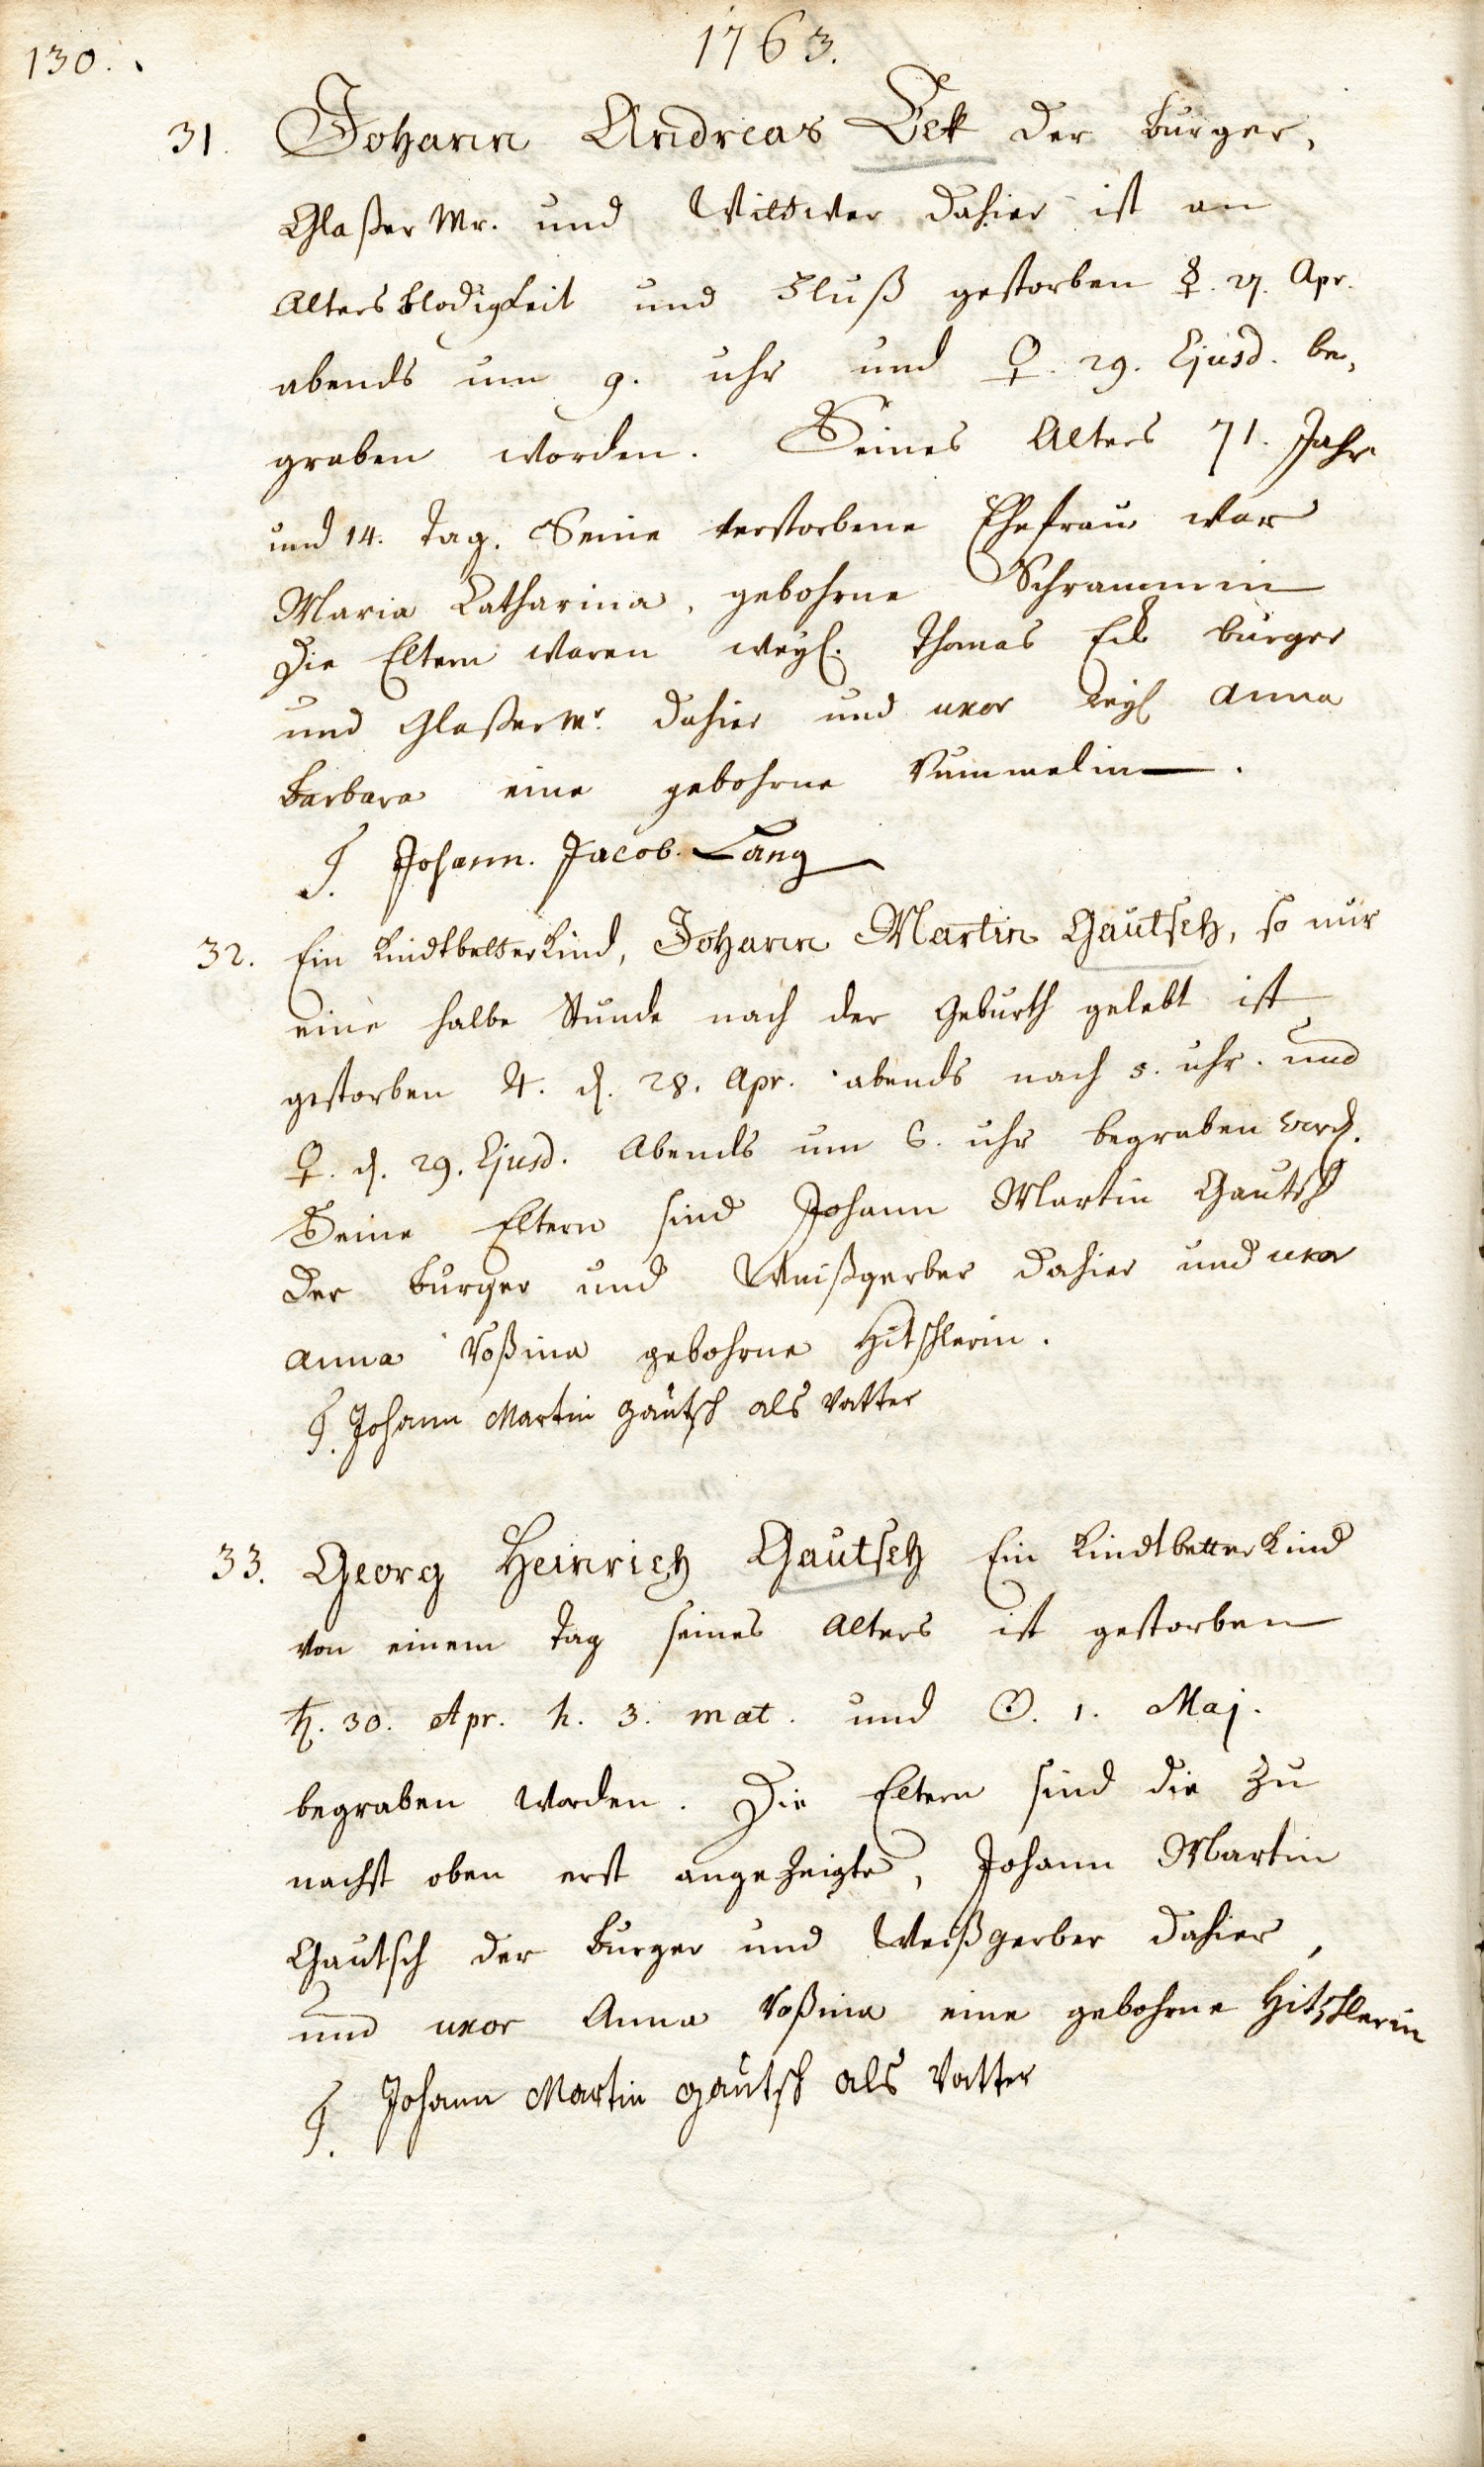 130.
1763.
31. Johann Andreas Eck der burger,
Glaßer Mr. und Wittwer dahier ist an
Alters blodigkeit und Fluß gestorben ☿. 27. Apr.
abends um 9. uhr und ♀. 29. Ejusd. be,
graben worden. Seines Alters 71. Jahr
und 14. Tag. Seine verstorbene Ehefrau war
Maria Catharina, gebohrne Schrammin
Die Eltern waren weyl. Thomas Eck burger
und Glaßer Mr. dahier und uxor weyl Anna
Barbara eine gebohrne Rummelin.
T. Johann. Jacob. Lang
32. Ein Kindtbetterkind, Johann Martin Gautsch, so nur
eine halbe Stunde nach der Geburth gelebt ist
gestorben ♃. d. 28. Apr. abends nach 5. uhr. und
♀. d. 29. Ejusd. Abends um 6. uhr begraben word.
Seine Eltern sind Johann Martin Gautsch
der burger und Weißgerber dahier und uxor
Anna Roßina gebohrne Hitschlerin.
T. Johann Martin gautsch als Vatter
33. Georg Heinrich Gautsch Ein Kindtbetter Kind
von einem Tag seines Alters ist gestorben
♄. 30. Apr. h. 3. mat. und ☉. 1. Maj.
begraben worden. Die Eltern sind die zu
nachst oben erst angezeigte, Johann Martin
Gautsch der burger und Weißgerber dahier,
und uxor Anna Roßina eine gebohrne Hitschlerin
T. Johann Martin gautsch als Vatter